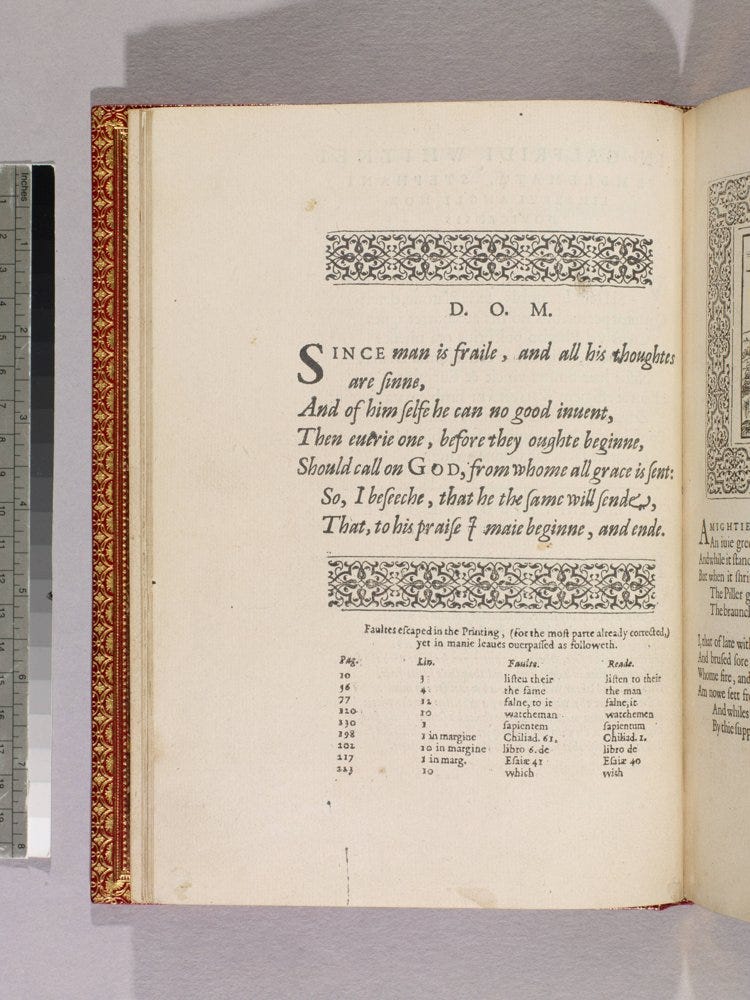 D. O. M.
SINCE man is fraile, and all his thoughtes
are ſinne,
And of him ſelfe he can no good inuent,
Then euerie one, before they oughte beginne,
Should call on GOD, from whome all grace is ſent:
So, I beſeeche, that he the ſame will ſende,
That, to his praiſe I maie beginne, and ende.
Faultes eſcaped in the Printing, (for the moſt parte already corrected,)
yet in manie leaues ouerpaſſed as followeth.
Pag. Lin. Faulte. Reade.
10 3 liſteu their liſten to their
56 4 the ſame the man
77 12 falne, to it falne, it
120 10 watcheman watchemen
130 1 ſapientem ſapientum
198 1 in margine Chiliad. 61. Chiliad. 1.
202 10 in margine libro 6. de libro de
217 1 in marg. Eſaiæ 41 Eſaiæ 40
223 10 which with
AMIGHTIE
An iuie gree
And while it ſtand
But when it ſhri
The Piller g
The braunch
I, that of late with
And bruſed ſore
Whome fire, and
Am nowe ſett fre
And whiles
By thie ſupp
Inches
1
2
3
4
5
6
7
8